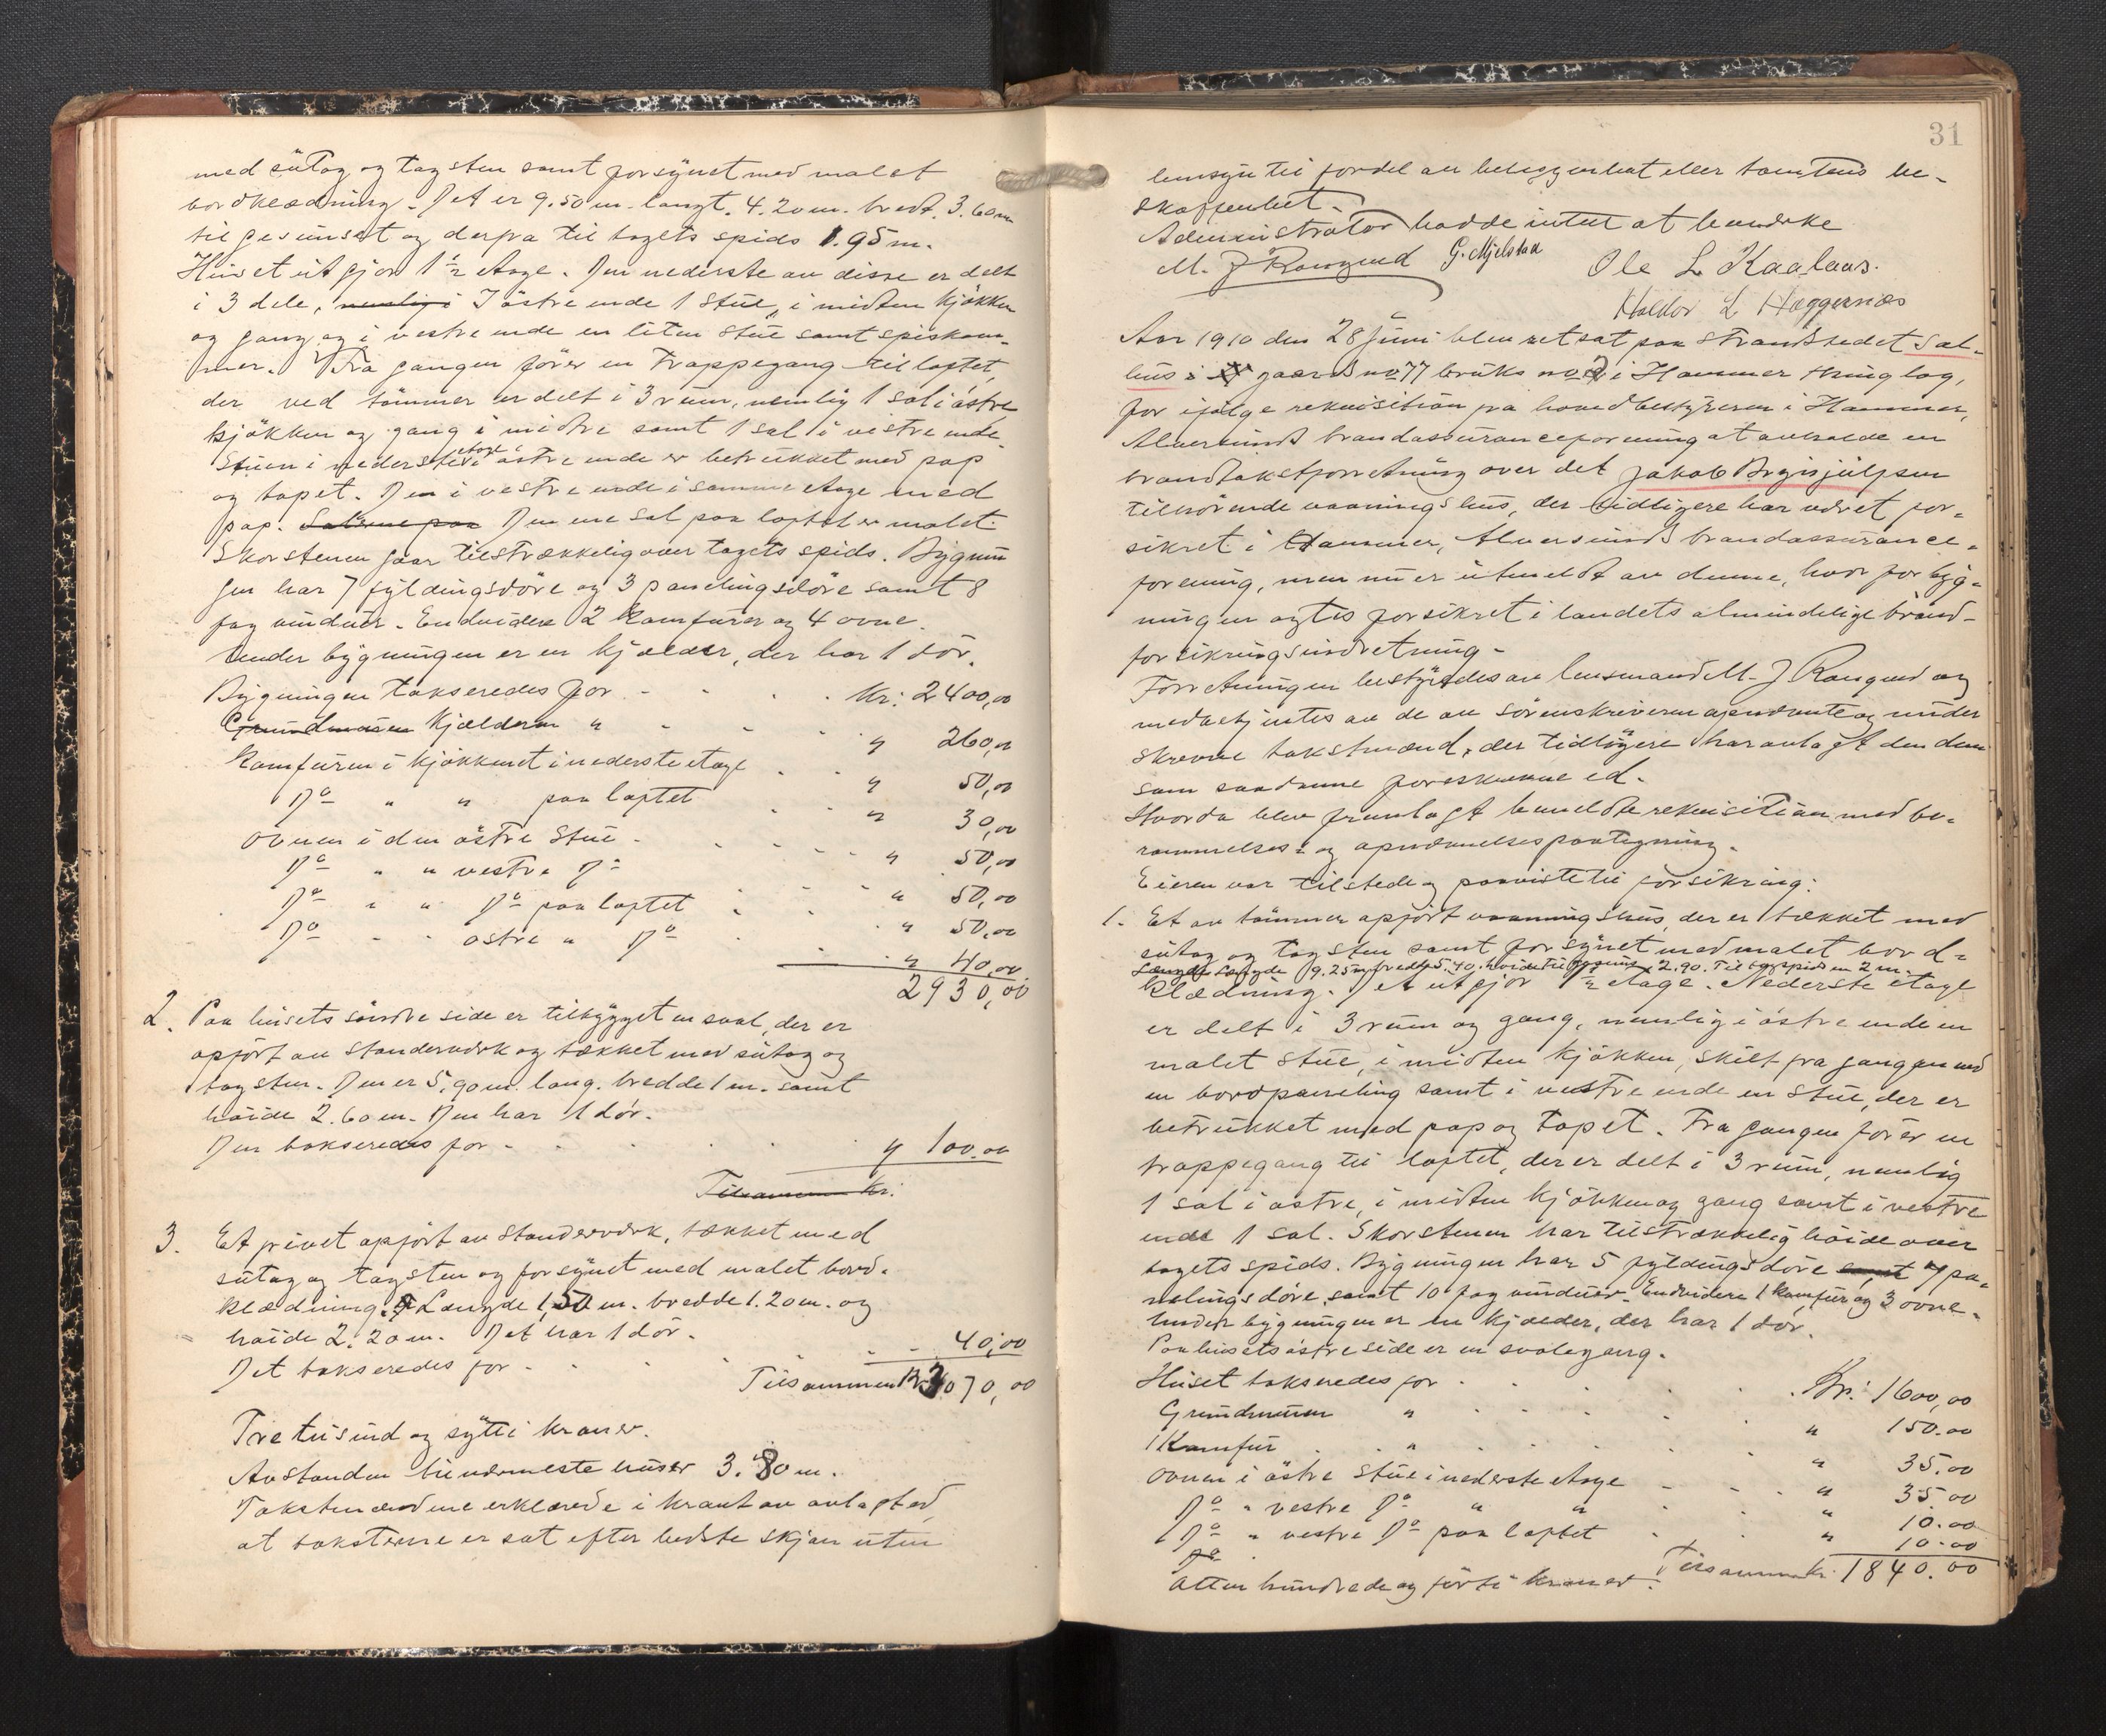 med sutag og tagsten samt forsynet med malet
bordklædning. Det er 9.50 m. langt. 4.20 m. bredt. 3.60 m
til gesimset og derfra til tagets spids 1.95 m.
Huset utgjør 1 1/2 etage. Den nederste av disse er delt
i 3 dele, nemlig i I østre ende 1 stue, i midten kjøkken
og gang og i vestre ende en liten stue samt spiskam-
mer. Fra gangen fører en trappegang til loftet,
der ved tømmer er delt i 3 rum, nemlig 1 sal i østre
kjøkken og gang i midtre samt 1 sal i vestre ende.
Stuen i nederste etage i østre ende er betrukket med pap
og tapet. Den i vestre ende i samme etage med
pap. Salene paa Den ene sal paa loftet er malet.
Skorstenen gaar tilstrækkelig over tagets spids. Bygnin
gen har 7 fyldingsdøre og 3 panelingsdøre samt 8
fag vinduer. Endvidere 2 komfurer og 4 ovne.
Under bygningen er en kjælder, der har 1 dør.
Bygningen takseredes for - - - Kr: 2400,00
Grundmuren Kjælderen " - - - " 260,00
Komfuren i kjøkkenet i nederste etage - - " 50,00
Do " " paa loftet - - " 30,00
Ovnen i den østre stue - - - - " 50,00
Do " " vestre Do - - - " 50,00
Do " " Do paa loftet - - " 50,00
Do - - østre " Do - - " 40,00
2930,00
2. Paa husets søndre side er tilbygget en sval, der er
opført av standerverk og tækket med sutag og
tagsten. Den er 5,90 m. lang. bredde 1 m. samt
høide 2.60 m. Den har 1 dør.
Den takseredes for - - - - " 100.00
Tilsammen Kr.
3. Et privet opført av standerværk, tækket med
sutag og tagsten og forsynet med malet bord-
klædning. Længde 1,50 m. bredde 1.20 m. og
høide 2.20 m. Det har 1 dør.
Det takseredes for - - - - - - 40,00
Tilsammen Kr 3070,00
Tre tusind og sytti kroner.
Avstanden til nærmeste hus er 3.80 m.
Takstmændene erklærede i kraft av avlagt ed,
at taksterne er sat efter bedste skjøn uten
31
hensyn til fordel av beliggenhet eller tomtens be-
skaffenhet.
Administrator hadde intet at bemerke
M. J Rongved G. Mjelstad Ole L Kaalaas.
Haldor L Hæggernæs
Aar 1910 den 28 juni blev ret sat paa strandstedet Sal-
hus i gaards no 77 bruks no 2 i Hammer thinglag,
for ifølge rekvisition fra hovedbestyreren i Hammer,
Alversunds brandassuranceforening at avholde en
brandtakstforretning over det Jakob Brynjulfsen
tilhørende vaaningshus, der tidligere har været for-
sikret i Hammer, Alversunds brandassurance-
forening, men nu er utmeldt av denne, hvorfor byg-
ningen agtes forsikret i landets almindelige brand-
forsikringsindretning.
Forretningen bestyredes av lensmand M. J Rongved og
medbetjentes av de av sørenskriveren opnævnte og under
skrevne takstmænd, der tidligere har avlagt den dem
som saadanne foreskrevne ed.
Hvorda blev fremlagt bemeldte rekvisition med be-
rammelses- og opnævnelsespaategning.
Eieren var tilstede og paaviste til forsikring:
1. Et av tømmer opført vaaningshus, der er tækket med
sutag og tagsten samt forsynet med malet bord-
Længde Længde 9.25 m bredde 5.40. høide til gesims 2.90. Til tagspidsen 2 m.
klædning. Det utgjør 1 1/2 etage. Nederste etage
er delt i 3 rum og gang, nemlig i østre ende en
malet stue, i midten kjøkken, skilt fra gangen ved
en bordpaneling samt i vestre ende en stue, der er
betrukket med pap og tapet. Fra gangen fører en
trappegang til loftet, der er delt i 3 rum, nemlig
1 sal i østre, i midten kjøkken og gang samt i vestre
ende 1 sal. Skorstenen har tilstrækkelig høide over
tagets spids. Bygningen har 5 fyldingsdøre samt 7 pa-
nelingsdøre samt 10 fag vinduer. Endvidere 1 komfur og 3 ovne.
Under bygningen er en kjælder, der har 1 dør.
Paa husets østre side er en svalegang.
Huset takseredes for - - - - Kr: 1600,00
Grundmuren " - - - - " 150.00
1 Komfur - " - - - - " 35.00
Ovnen i østre stue i nederste etage - - - " 35.00
Do " vestre Do " " - - " 10.00
Do " vestre Do paa loftet - - " 10.00
Do
Tilsammen kr. 1840.00
Atten hundrede og førti kroner.